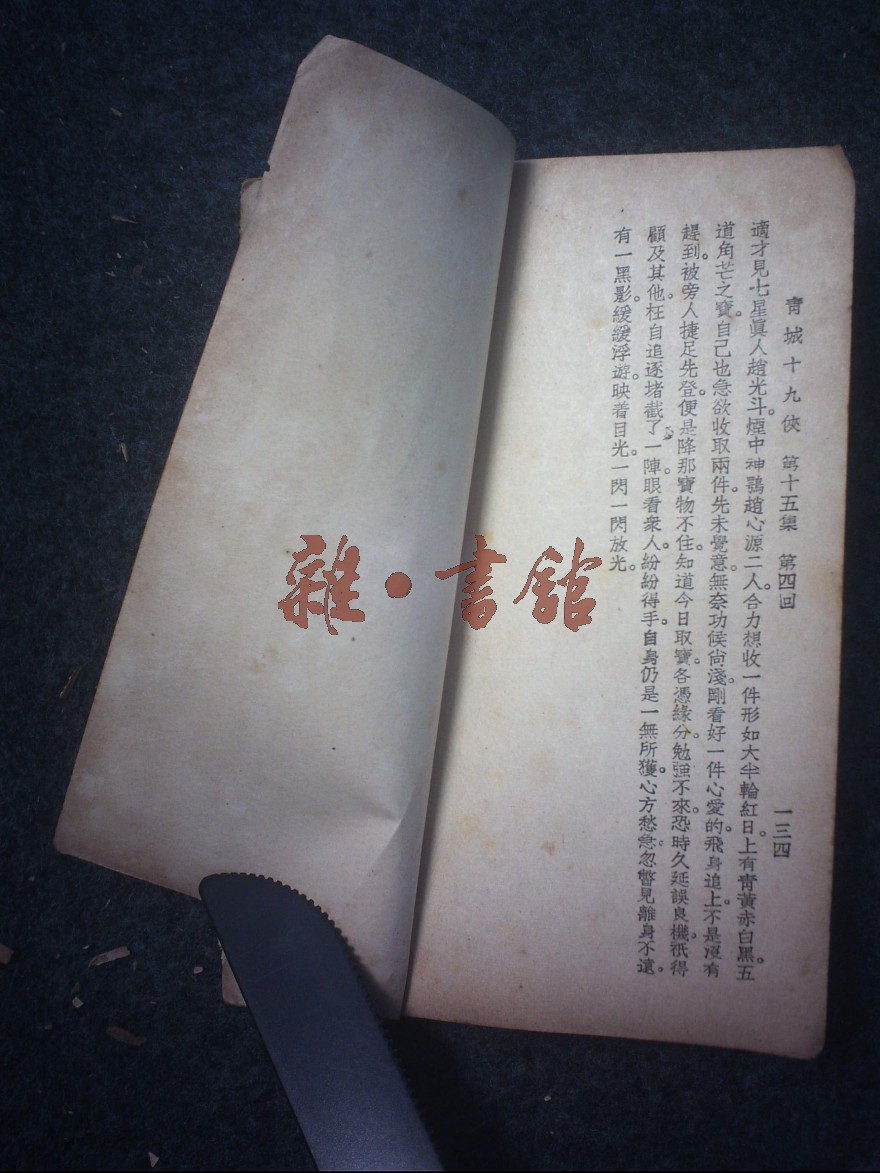 青城十九俠　第十五集　第四回　一三四
適才見七星眞人趙光斗。煙中神鶚趙心源二人。合力想收一件形如大半輪紅日。上有靑黃赤白黑五
道角芒之寶。自己也急欲收取兩件。先未覺意。無奈功候尙淺。剛看好一件心愛的。飛身追上。不是沒有
趕到。被旁人捷足先登。便是降那寶物不住。知道今日取寶。各憑緣分。勉强不來。恐時久延誤良機。祇得
顧及其他。枉自追逐堵截了一陣。眼看衆人。紛紛得手。自身仍是一無所獲。心方愁急。忽瞥見離身不遠。
有一黑影。緩緩浮遊。映着目光。一閃一閃放光。
雜·書館